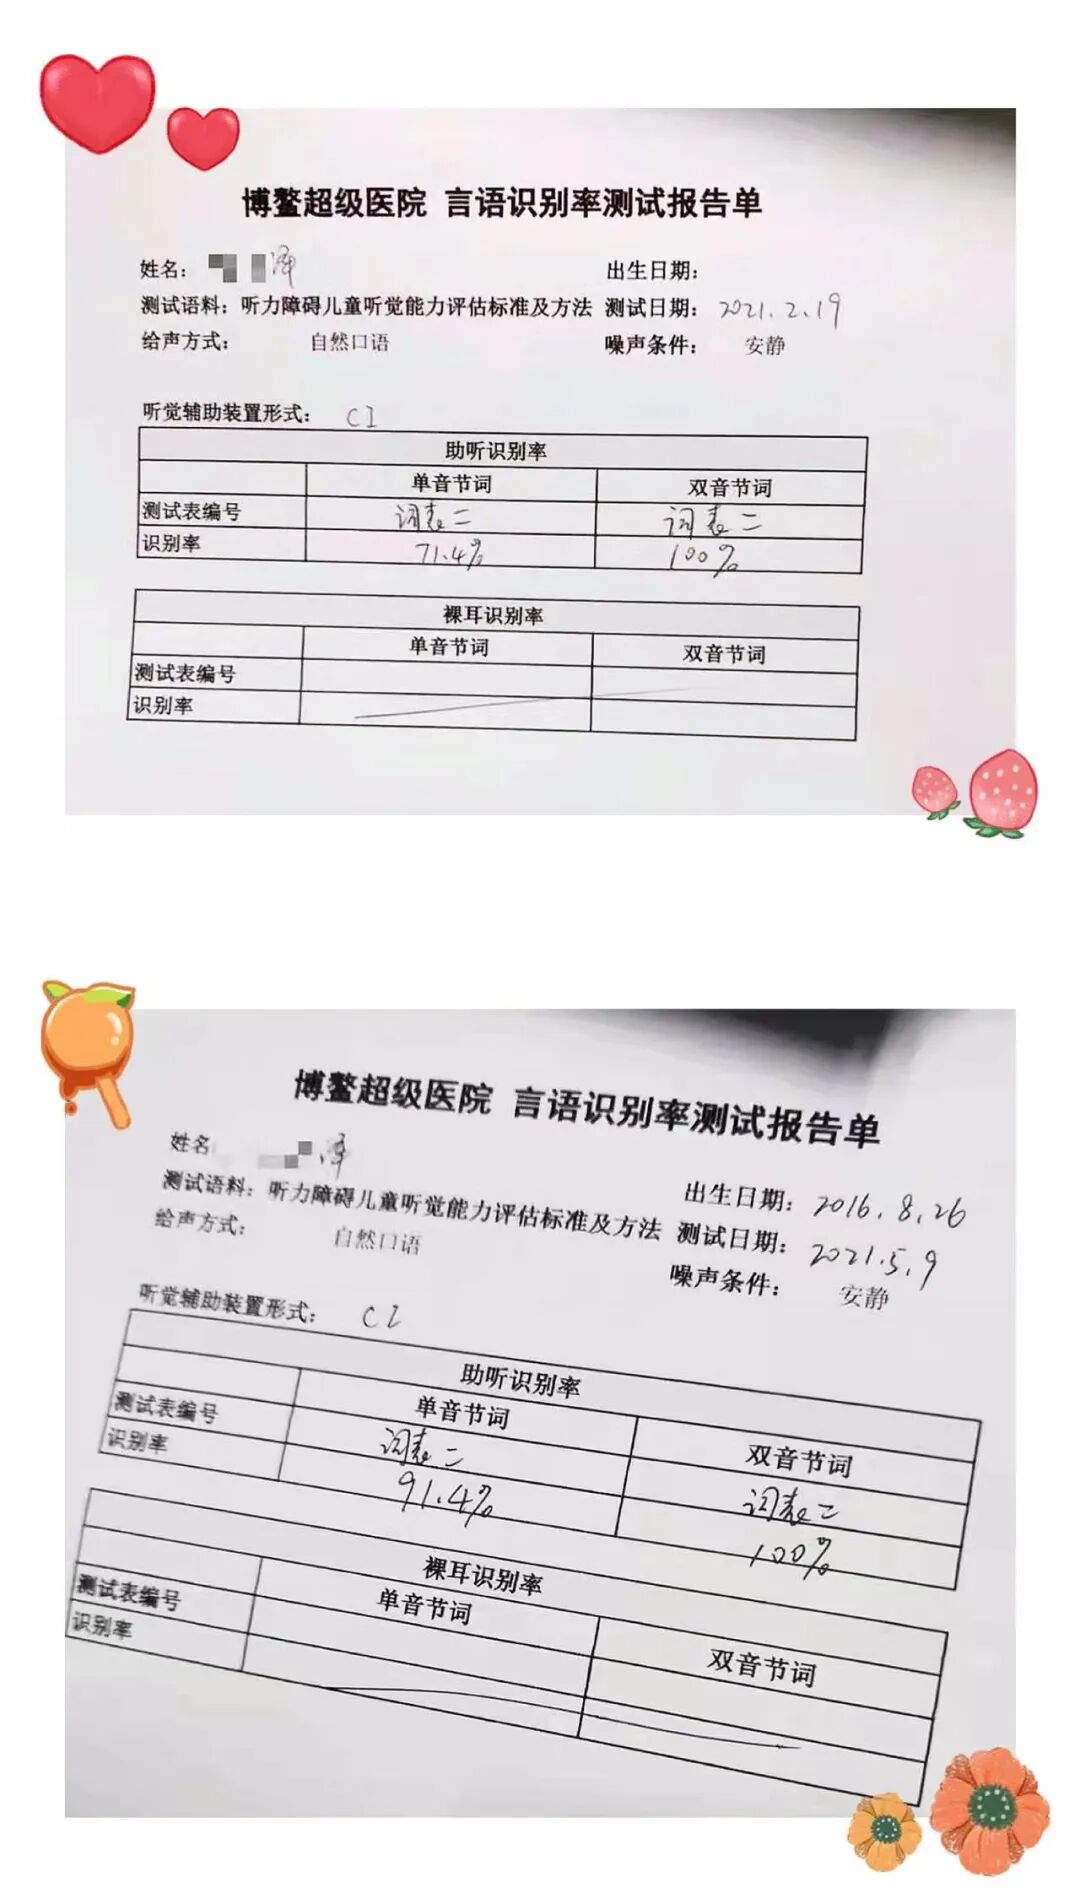 博鳌超级医院 言语识别率测试报告单
姓名： 泽 出生日期：
测试语料：听力障碍儿童听觉能力评估标准及方法 测试日期：2021.2.19
给声方式： 自然口语 噪声条件： 安静
听觉辅助装置形式： CI
助听识别率
单音节词 双音节词
测试表编号 词表二 词表二
识别率 71.4% 100%
裸耳识别率
单音节词 双音节词
测试表编号
识别率
博鳌超级医院 言语识别率测试报告单
姓名 泽 出生日期：2016.8.26
测试语料：听力障碍儿童听觉能力评估标准及方法 测试日期：2021.5.9
给声方式： 自然口语 噪声条件： 安静
听觉辅助装置形式： CI
助听识别率
单音节词 双音节词
测试表编号 词表二 词表二
识别率 91.4% 100%
裸耳识别率
单音节词 双音节词
测试表编号
识别率